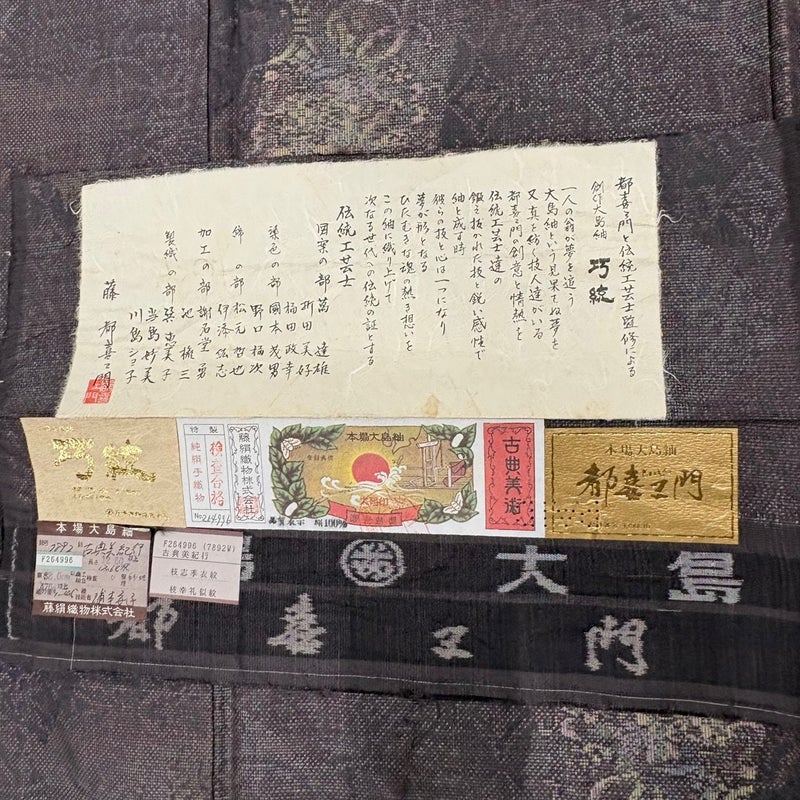 都喜ヱ門と伝統工芸士監修による
創作大島紬 巧統
一人の翁が夢を追う
大島紬という見果てぬ夢を
又真を紡ぐ技人達がいる
都喜ヱ門の創意と情熱を
伝統工芸士達の
鍛え抜かれた技と鋭い感性で
紬と成す時
彼らの技と心は一つになり
夢が形となる
ひたむきな魂の熱き想いを
この紬に織り上げて
次なる世代への伝統の証とする
伝統工芸士
図案の部 萬 達雄
折田 美好
福田 政幸
染色の部 國本 茂男
野口 福次
締の部 松元 哲也
伊湊 佐志
加工の部 謝名堂 勇
池 権三
製織の部 築 恵美子
当島 妙美
川島 ショ子
藤 都喜ヱ門
巧統
特製
検査合格
純絹手織物
No 264996
藤絹織物株式会社
本場大島紬
登録商標
品質表示 絹100%
古典美術
本場大島紬
都喜ヱ門
本場大島紬
7892
F264996
藤絹織物株式会社
F264996 (7892W)
古典美紀行
枝志季衣紋
枝幸礼似紋
大島
都喜ヱ門